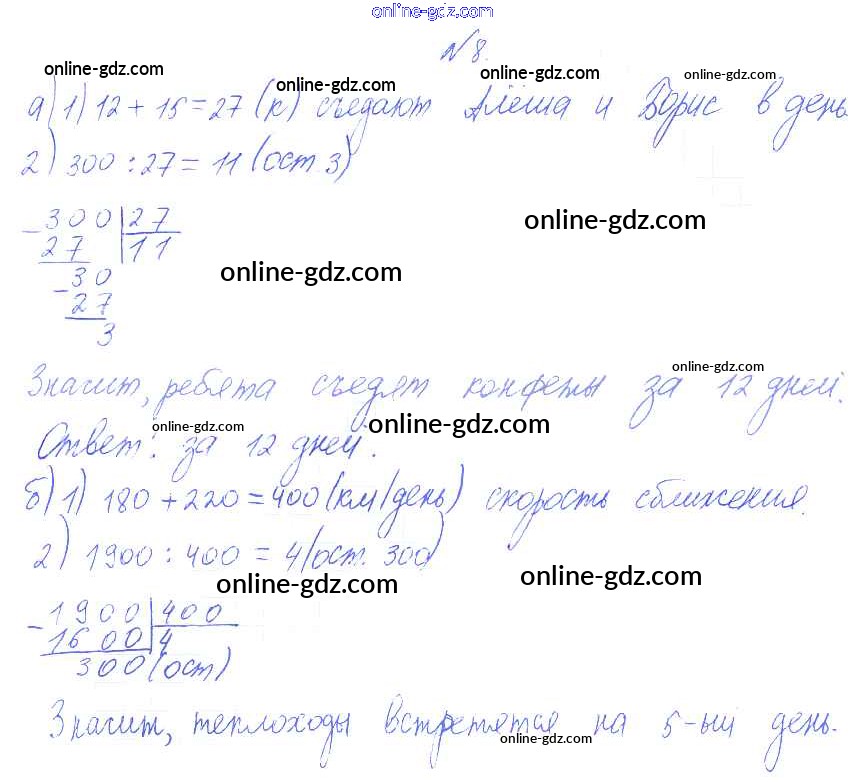 online-gdz.com
№ 8.
online-gdz.com online-gdz.com online-gdz.com online-gdz.com
а) 1) 12 + 15 = 27 (к) съедают Алёша и Борис в день
2) 300 : 27 = 11 (ост. 3)
online-gdz.com
- 300 | 27
27 11
online-gdz.com
- 30
27
3
online-gdz.com
Значит, ребята съедят конфеты за 12 дней.
online-gdz.com online-gdz.com
Ответ: за 12 дней.
б) 1) 180 + 220 = 400 (км/день) скорость сближения.
2) 1900 : 400 = 4 (ост. 300)
online-gdz.com online-gdz.com
- 1900 | 400
1600 4
300 (ост)
Значит, теплоходы встретятся на 5-ый день.
online-gdz.com